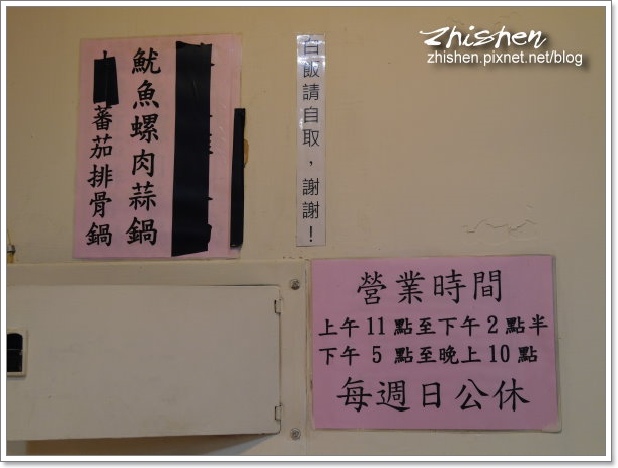 Zhishen
zhishen.pixnet.net/blog
魷魚螺肉蒜鍋
蕃茄排骨鍋
白飯請自取，謝謝！
營業時間
上午 11 點至下午 2 點半
下午 5 點至晚上 10 點
每週日公休